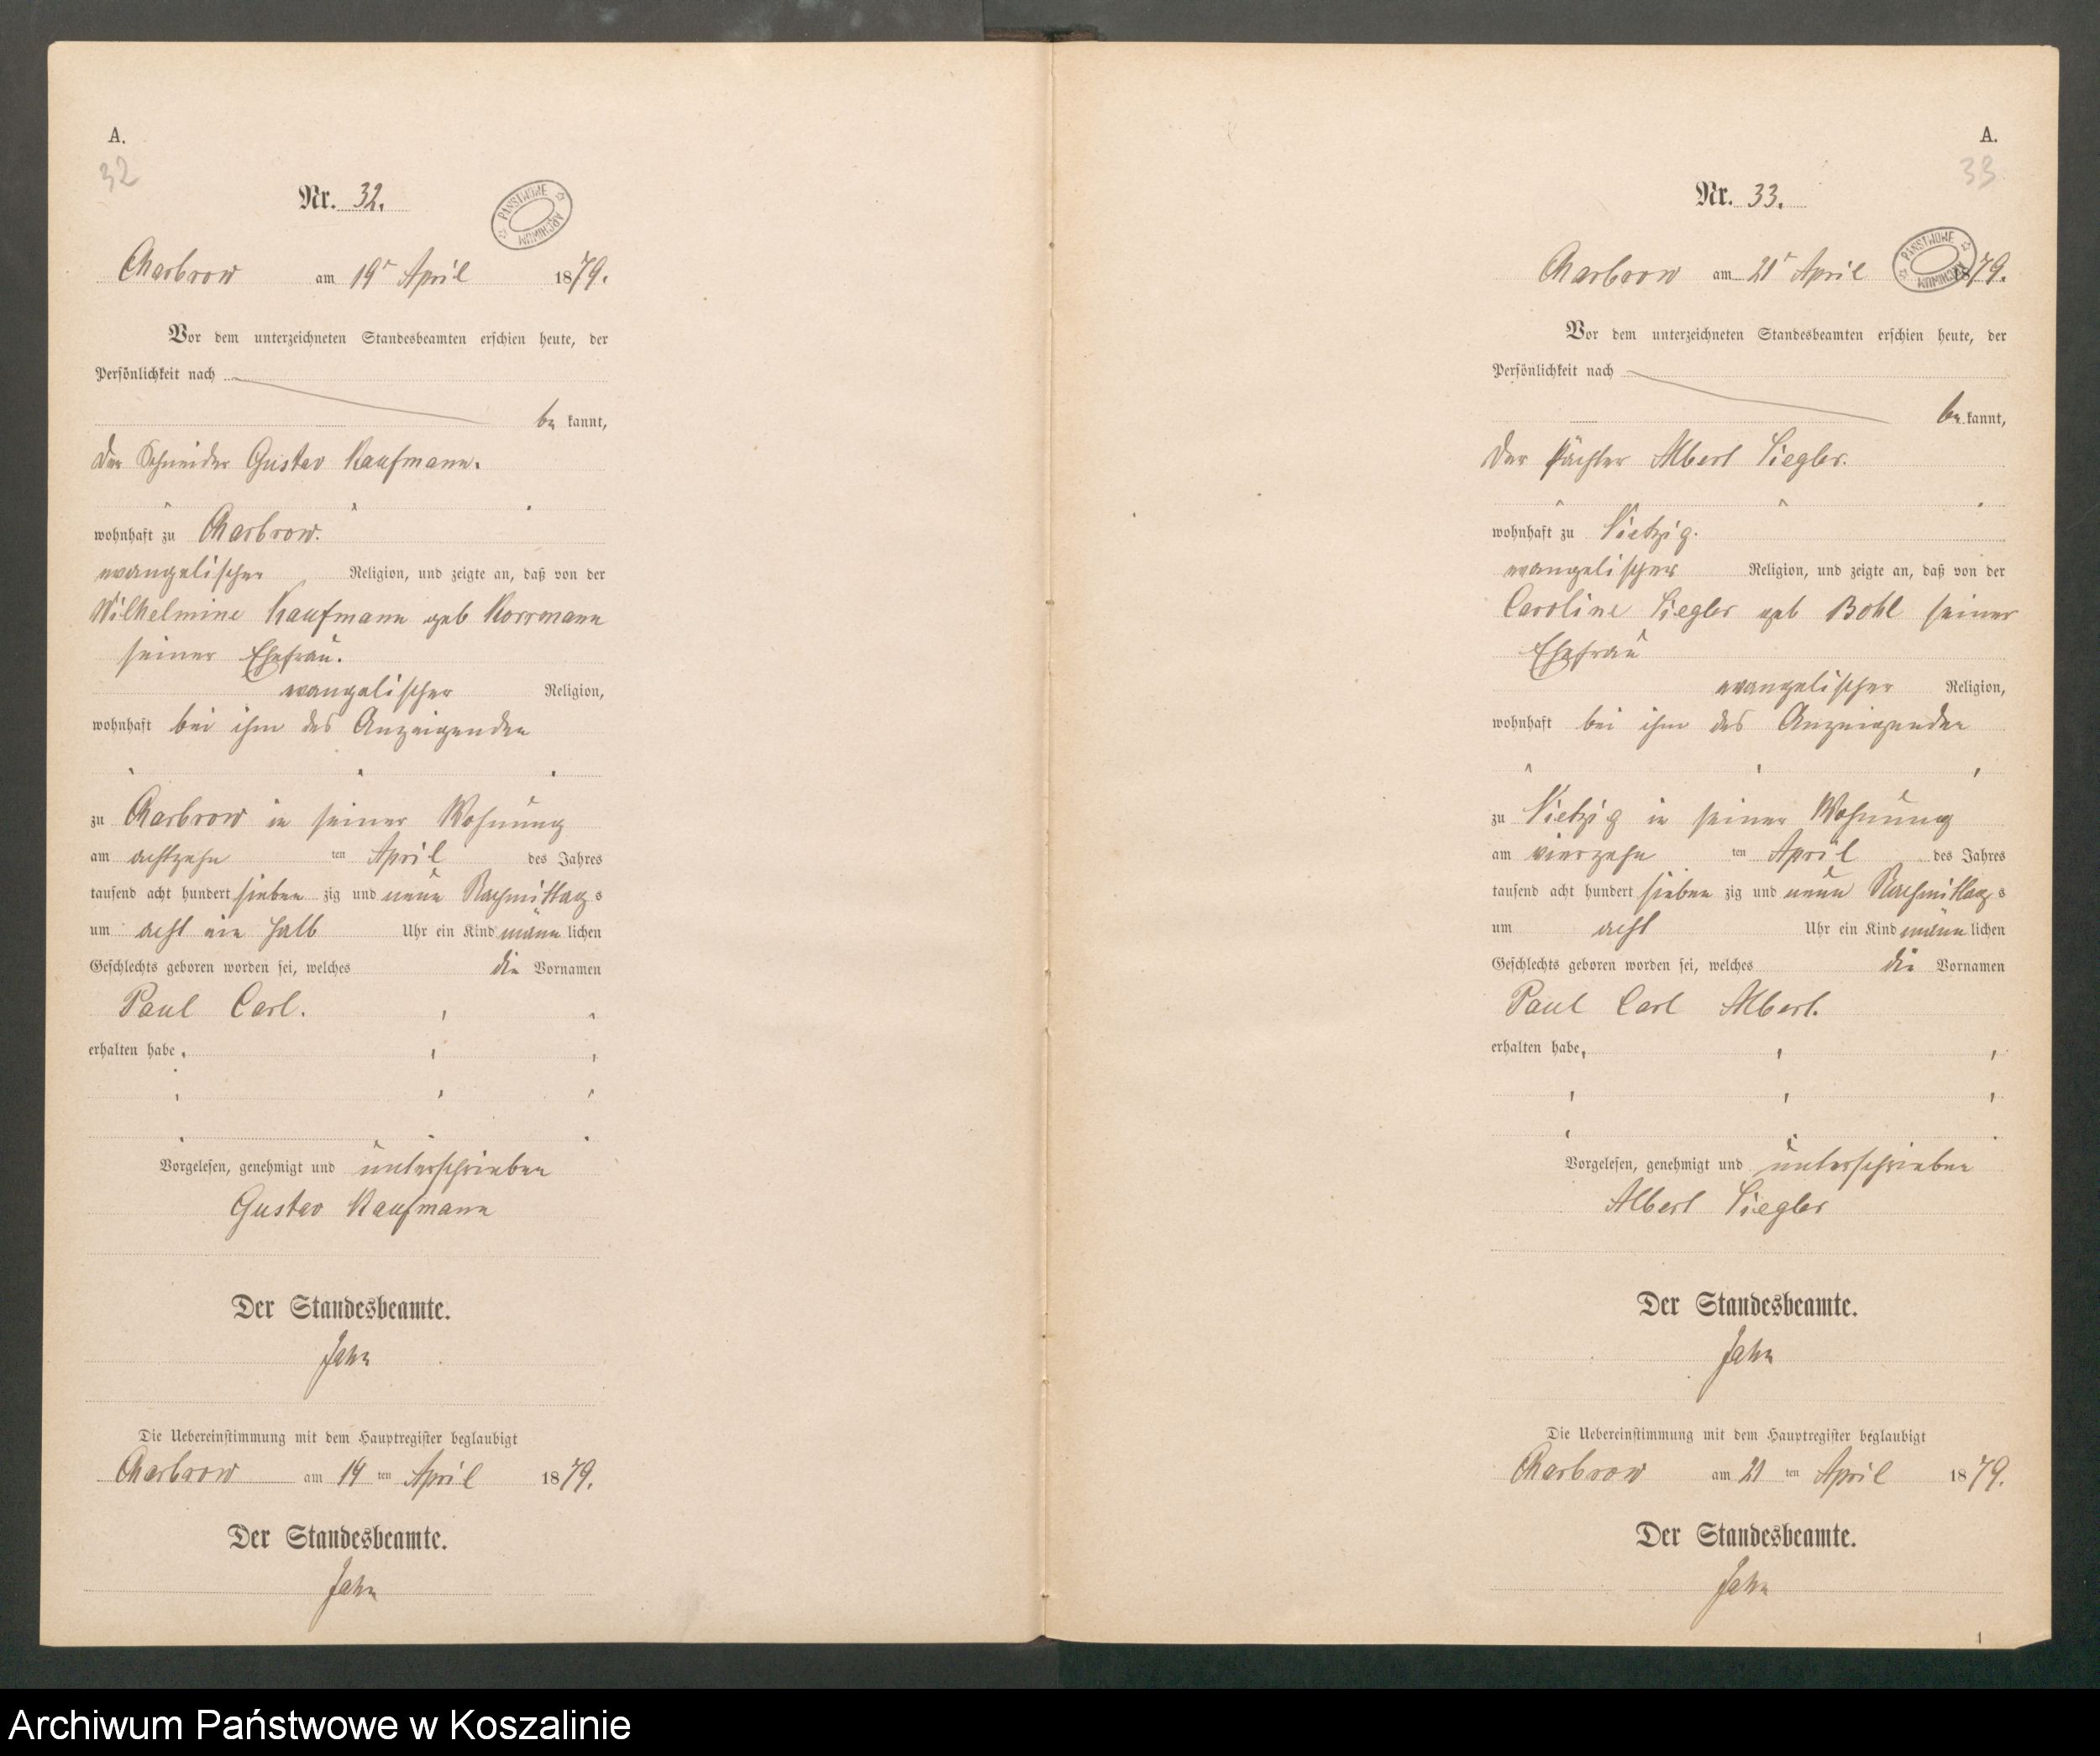 A.
32
Nr. 32.
PANSTWOWE ARCHIWUM
Charbrow am 19t April 1879.
Vor dem unterzeichneten Standesbeamten erschien heute, der
Persönlichkeit nach
be kannt,
der Schneider Gustav Kaufmann.
wohnhaft zu Charbrow.
evangelischer Religion, und zeigte an, daß von der
Wilhelmine Kaufmann geb Korrmann
seiner Ehefrau.
evangelischer Religion,
wohnhaft bei ihm des Anzeigenden
zu Charbrow in seiner Wohnung
am achtzehn ten April des Jahres
tausend acht hundert sieben zig und neun Nachmittag s
um acht ein halb Uhr ein Kind männ lichen
Geschlechts geboren worden sei, welches die Vornamen
Paul Carl.
erhalten habe
Vorgelesen, genehmigt und unterschrieben
Gustav Kaufmann
Der Standesbeamte.
Jahn
Die Uebereinstimmung mit dem Hauptregister beglaubigt
Charbrow am 19 ten April 1879.
Der Standesbeamte.
Jahn
A.
33
Nr. 33.
PANSTWOWE ARCHIWUM
Charbrow am 21t April 1879.
Vor dem unterzeichneten Standesbeamten erschien heute, der
Persönlichkeit nach
be kannt,
Der Pächter Albert Siegler.
wohnhaft zu Vietzig.
evangelischer Religion, und zeigte an, daß von der
Caroline Siegler geb Bohl seiner
Ehefrau
evangelischer Religion,
wohnhaft bei ihm des Anzeigenden
zu Vietzig in seiner Wohnung
am vierzehn ten April des Jahres
tausend acht hundert sieben zig und neun Nachmittag s
um acht Uhr ein Kind männ lichen
Geschlechts geboren worden sei, welches die Vornamen
Paul Carl Albert.
erhalten habe
Vorgelesen, genehmigt und unterschrieben
Albert Siegler
Der Standesbeamte.
Jahn
Die Uebereinstimmung mit dem Hauptregister beglaubigt
Charbrow am 21 ten April 1879.
Der Standesbeamte.
Jahn
1
Archiwum Państwowe w Koszalinie